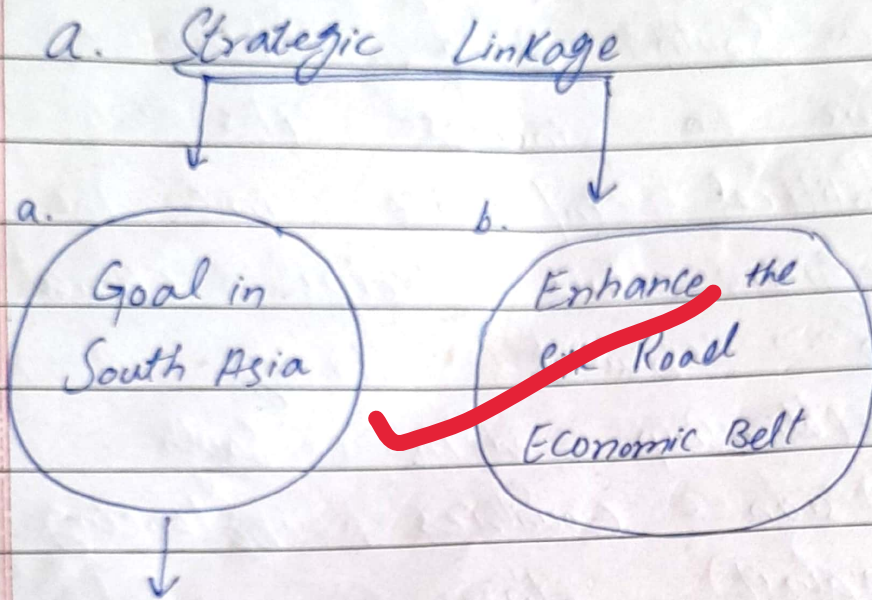 a. Strategic Linkage
a.
Goal in
South Asia
b.
Enhance the
Road
Economic Belt